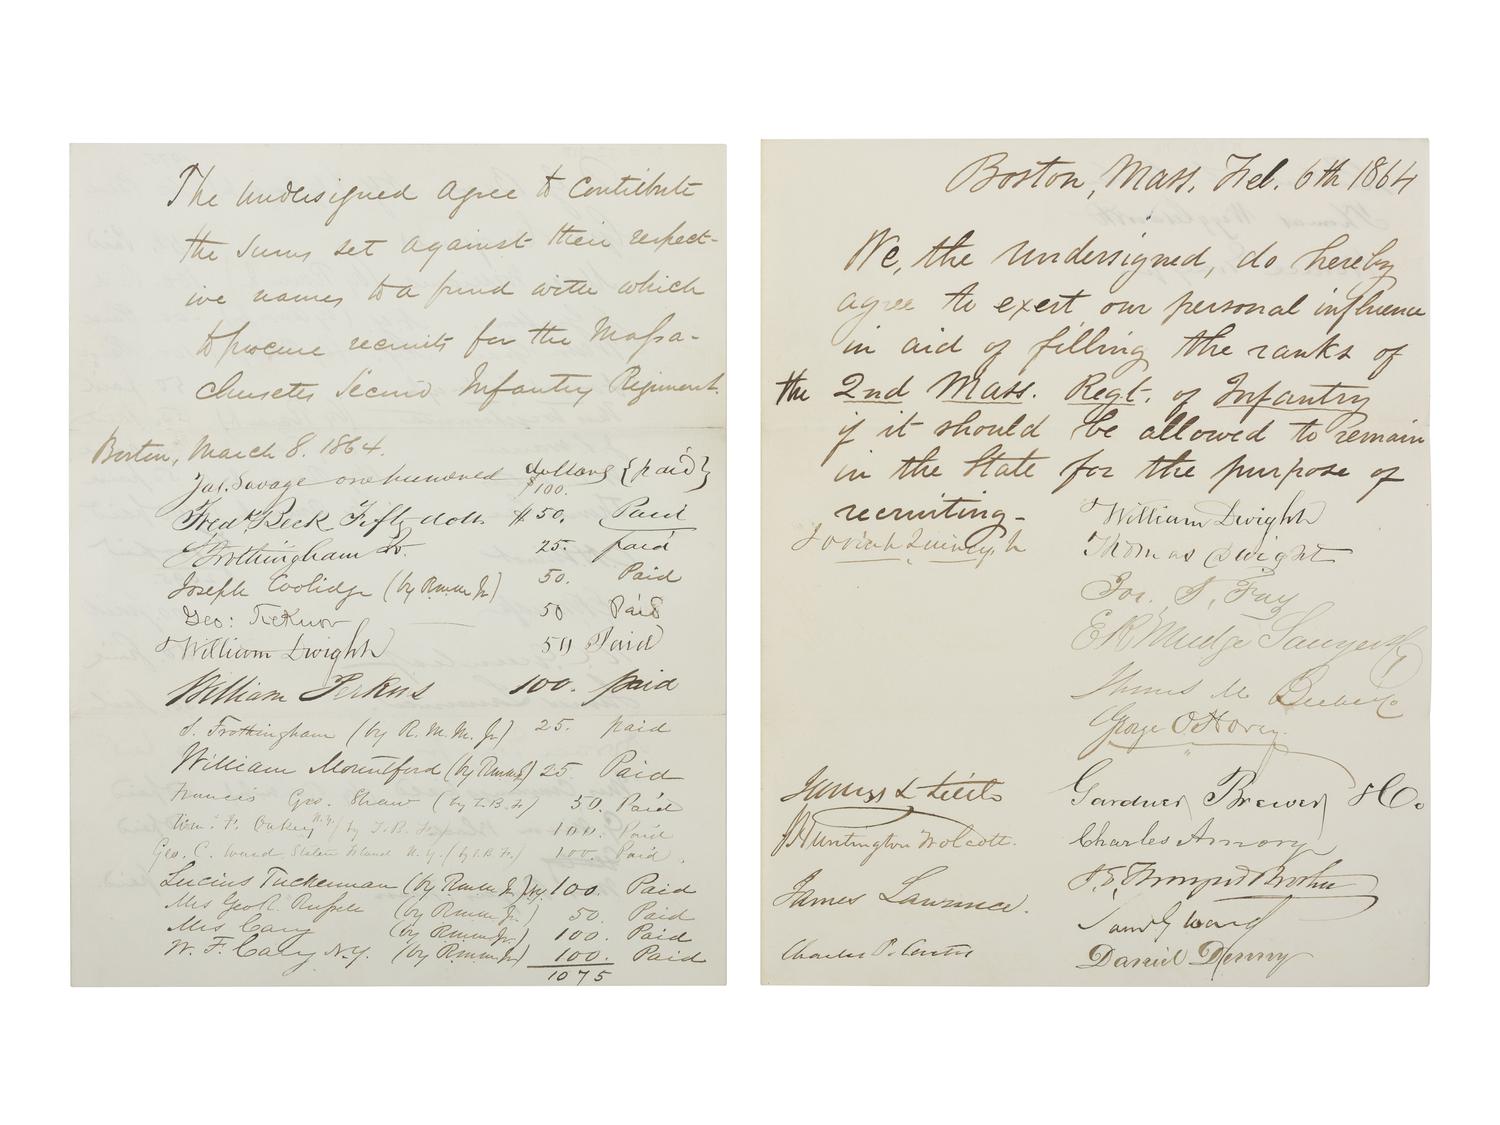 The undersigned agree to contribute
the sums set against their respect-
ive names to a fund with which
to procure recruits for the Massa-
chusetts Second Infantry Regiment.
Boston, March 8. 1864.
Jas. Savage one hundred dollars {paid}
$100.
Fredk. Beck Fifty dolls $50. Paid
Frothingham 25. paid
Joseph Coolidge (by R.M.M. Jr) 50. Paid
Geo: Ticknor 50 Paid
William Dwight 50 Paid
William Perkins 100. paid
S. Frothingham (by R. M. M. Jr) 25. paid
William Mountford (by R.M.M. Jr) 25 Paid
Francis Geo. Shaw (by T.B.F.) 50. Paid
Wm. F. Oakey N.Y. (by T.B.F.) 100. Paid
Geo. C. Ward Staten Island N.Y. (by T.B.F.) 100. Paid.
Lucius Tuckerman (by R.M.M. Jr) N.Y. 100. Paid
Mrs Geo R. Russell (by R.M.M. Jr.) 50. Paid
Mrs Cary (by R.M.M. Jr.) 100. Paid
W. F. Cary N.Y. (by R.M.M. Jr) 100. Paid
1075
Boston, Mass. Feb. 6th 1864
We, the undersigned, do hereby
agree to exert our personal influence
in aid of filling the ranks of
the 2nd Mass. Regt. of Infantry
if it should be allowed to remain
in the State for the purpose of
recruiting-
Josiah Quincy Jr
William Dwight
Thomas Dwight
Jos. S. Fay
E R Mudge Sawyer & Co
George O Hovey
Gardner Brewer & Co.
James L Little
J Huntington Wolcott.
Charles Amory
James Lawrence.
Saml G Ward
Charles P. Curtis
Daniel Denny